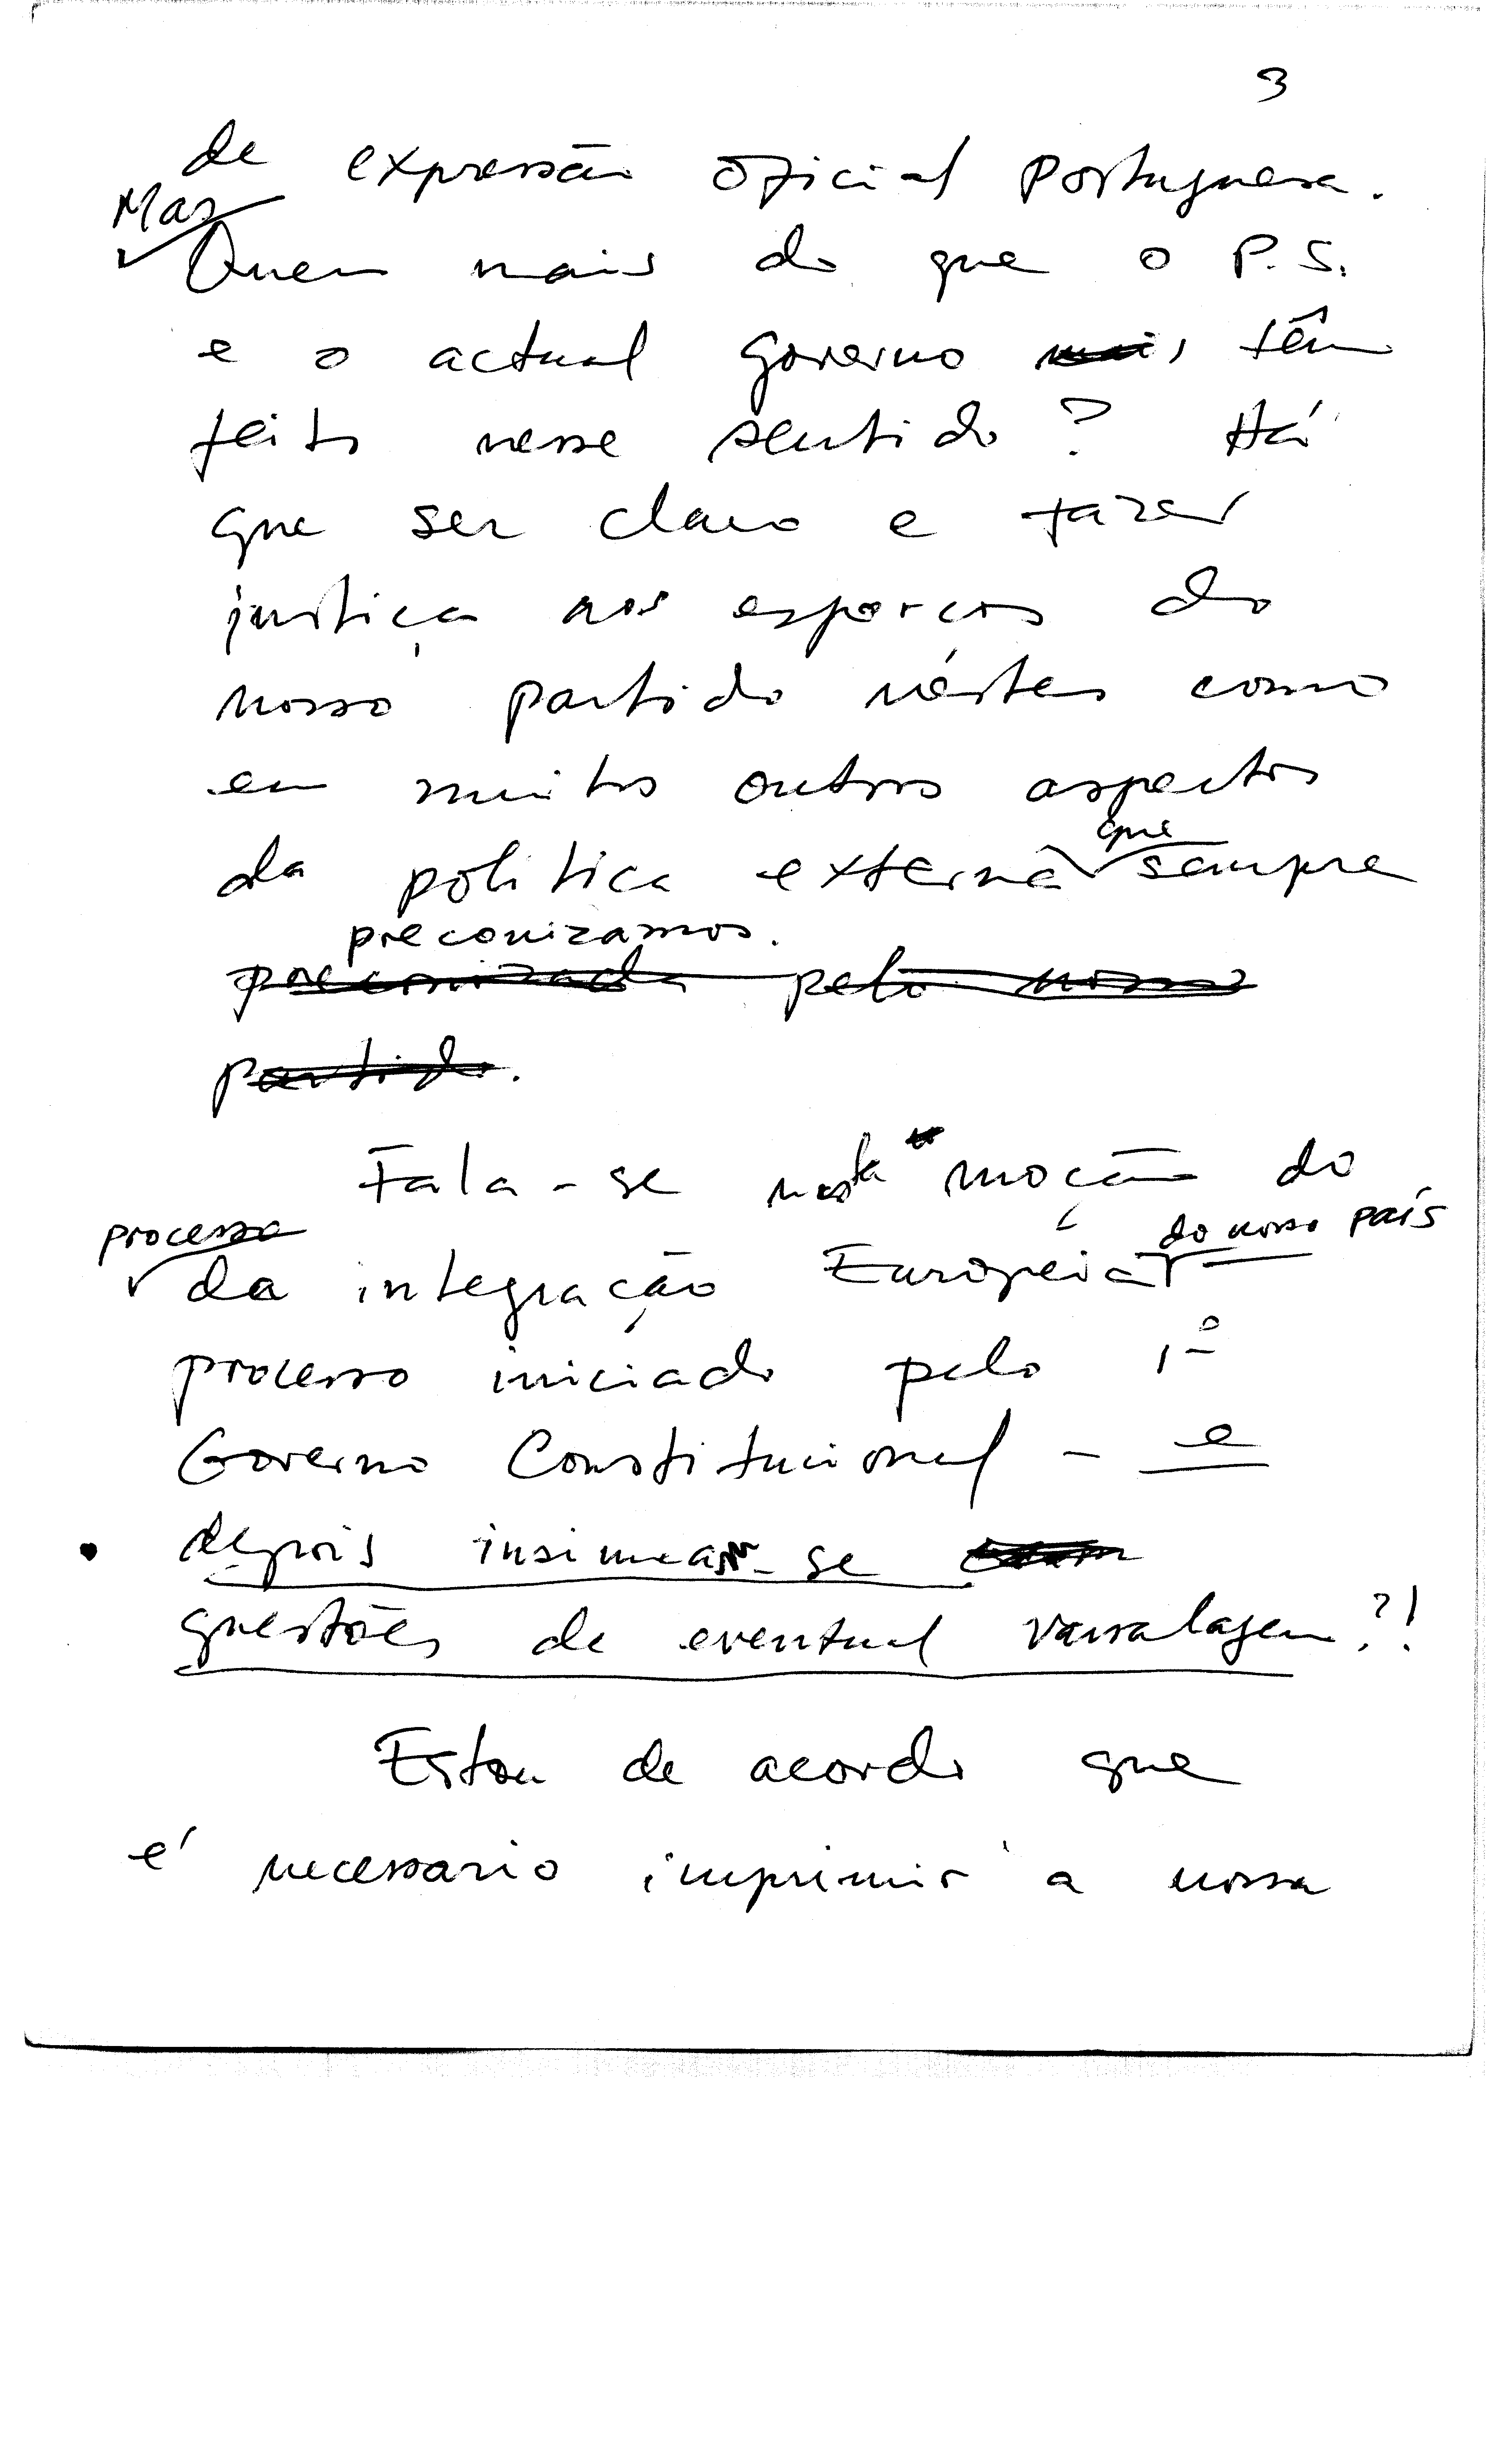 3
de expressão oficial portuguesa.
Mas
Quem mais do que o P.S.
e o actual Governo mais têm
feito nesse sentido? Há
que ser claro e fazer
justiça aos esforços do
nosso partido néstes como
em muitos outros aspectos
que
da politica externa sempre
preconizamos.
preconizada pelo nosso
partido.
Fala-se nesta moção do
processo do nosso país
da integração Européia
processo iniciado pelo 1º
Governo Constitucional - e
depois insinuam-se
questões de eventual vassalagem?!
Estou de acordo que
é necessario imprimir a nossa